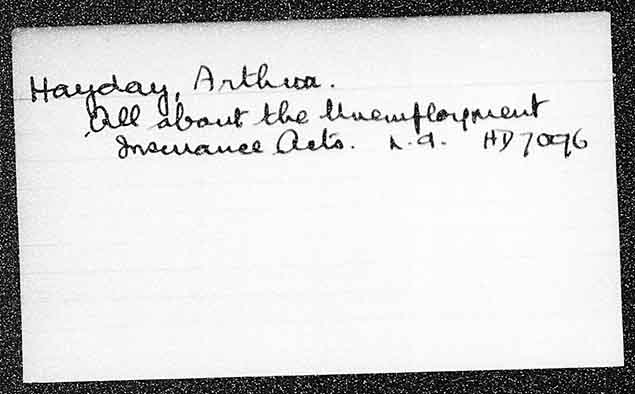 Hayday, Arthur.
All about the Unemployment
Insurance Acts. n.d. HD7096